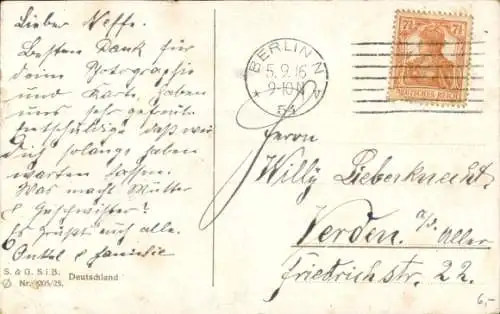 Lieber Neffe.
Besten Dank für
deine Photographie
und Karte, haben
uns sehr gefreut.
Entschuldige daß wir
Dich solange haben
warten lassen.
Was macht Mutter
& Geschwister?
Es grüßt euch alle.
Onkel & Familie
S. & G. S. i B.
Nr. 1205/25. Deutschland
BERLIN N
5.9.16
9-10 N
54
7½ 7½
DEUTSCHES REICH
Herrn
Willy Lieberknecht.
Verden. a/d. Aller
Friedrichstr. 22.
6,-